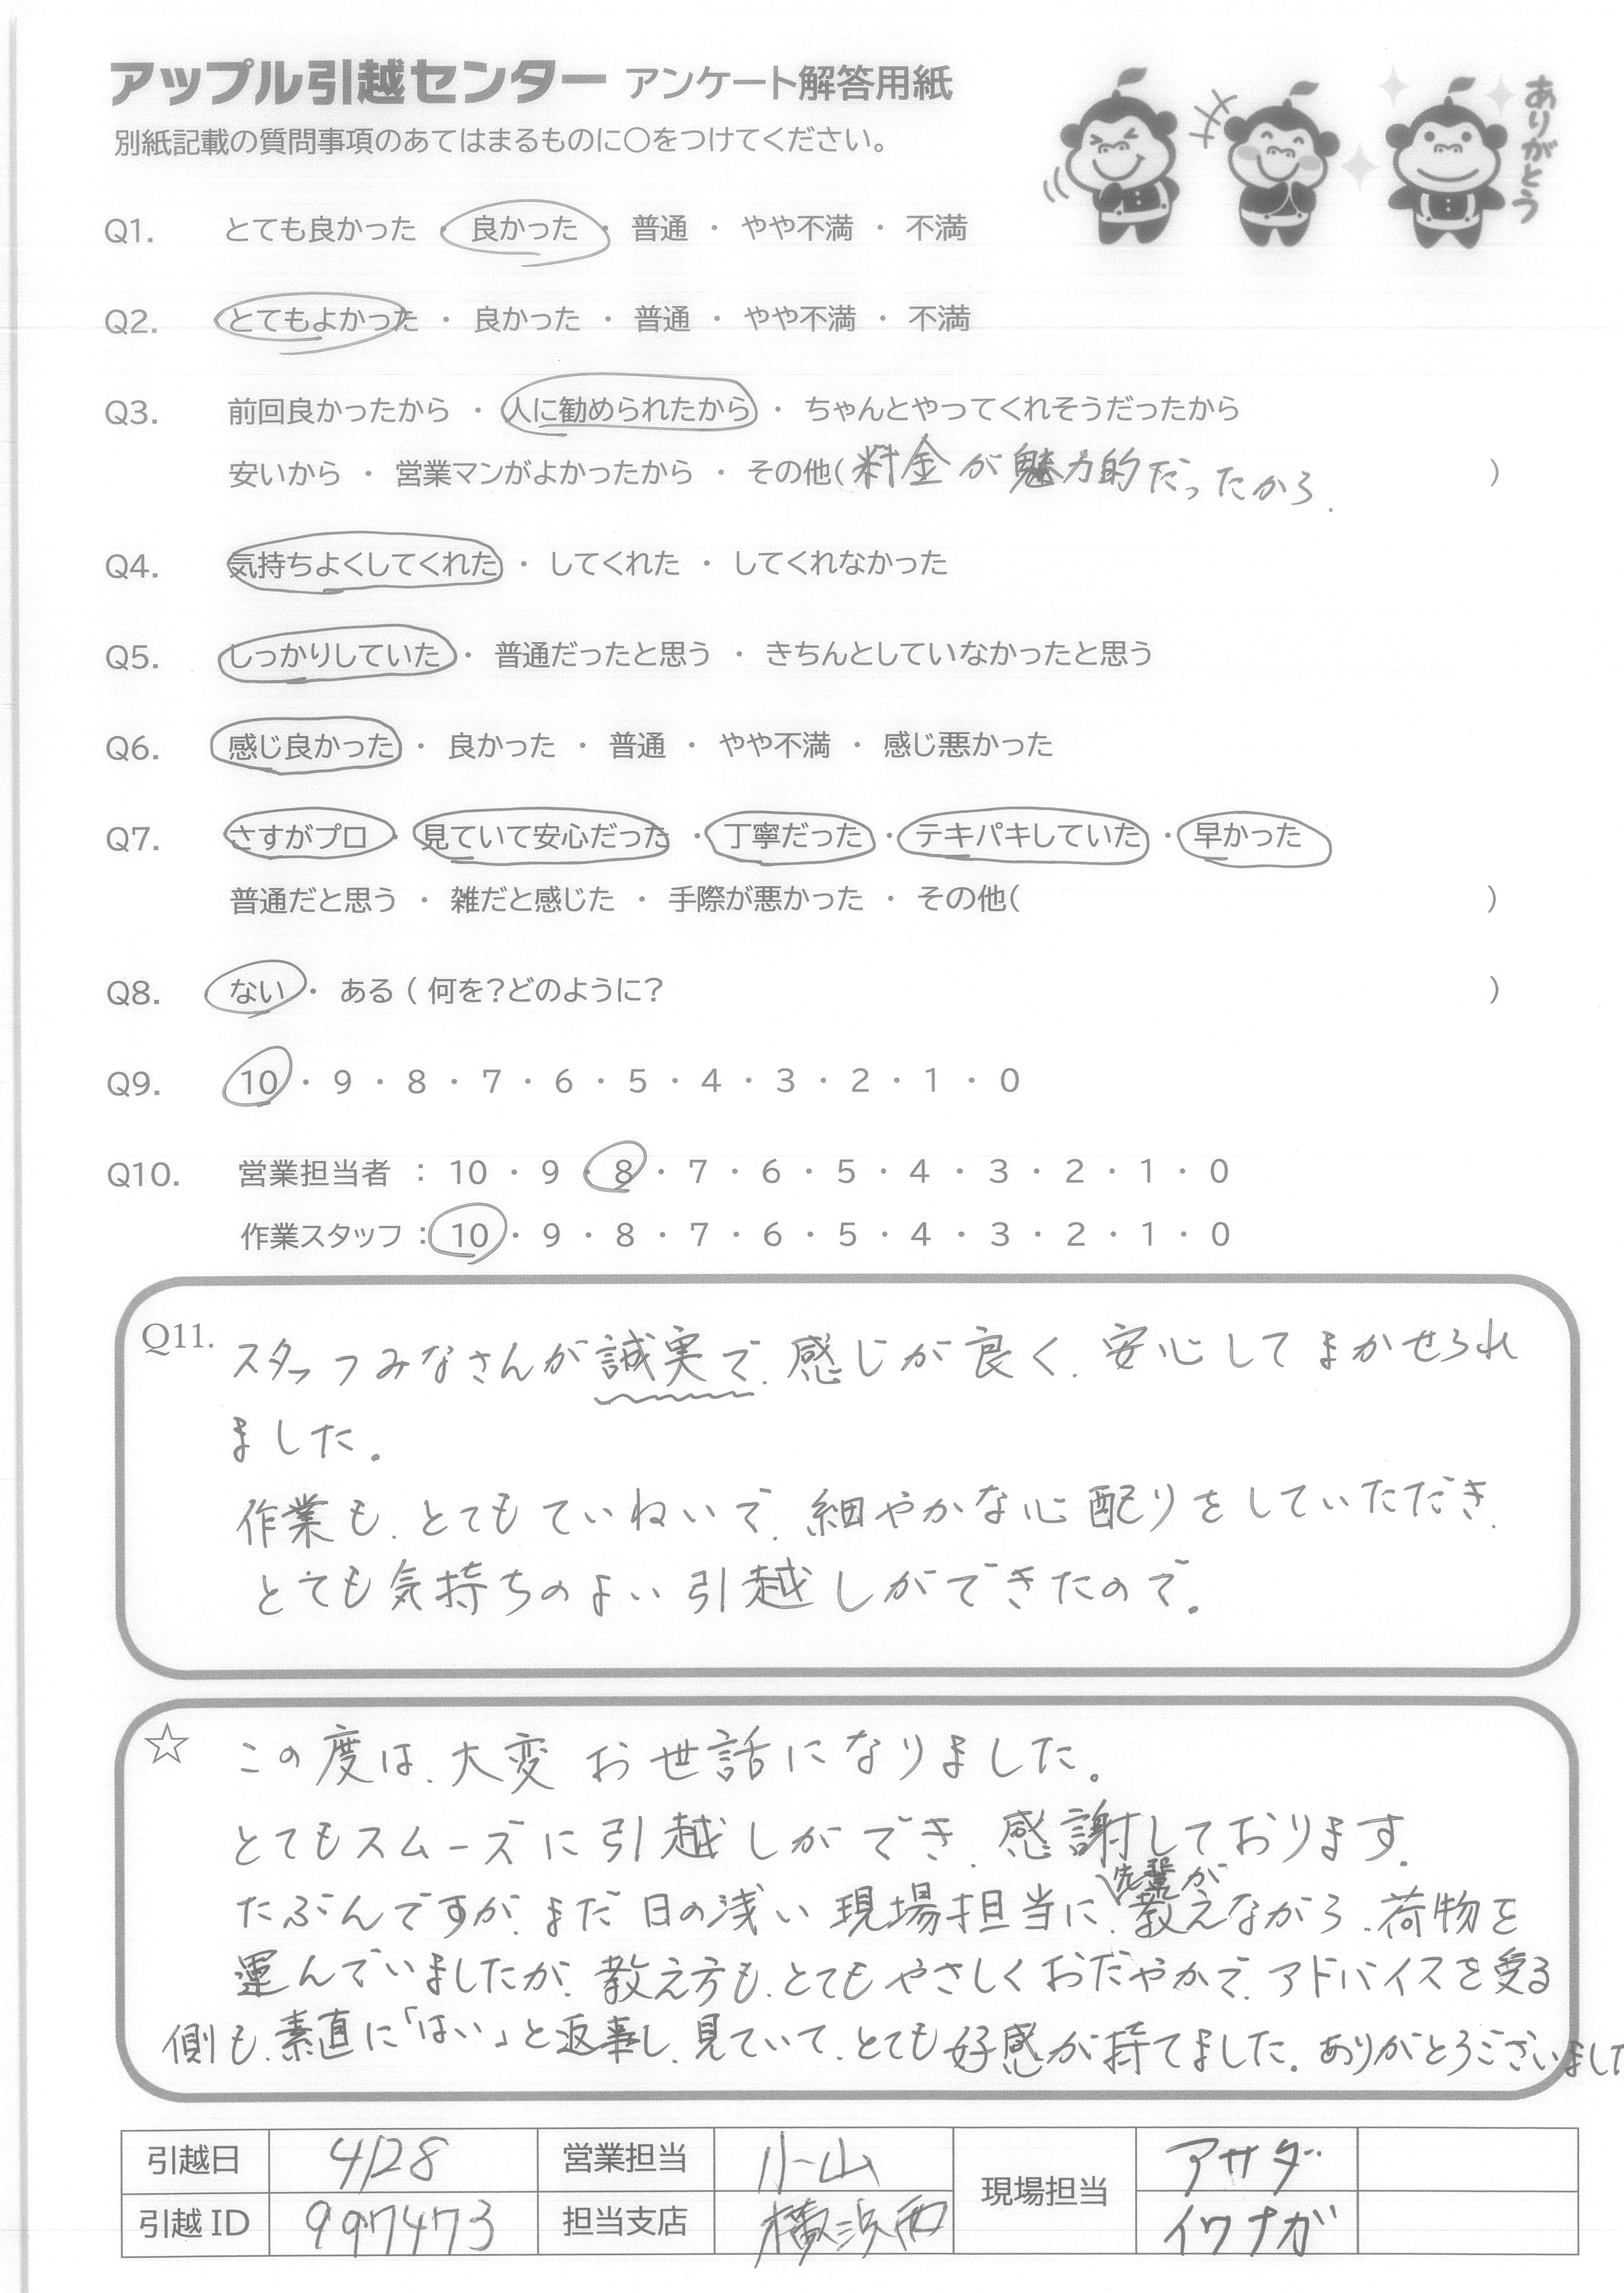 アップル引越センター アンケート解答用紙
別紙記載の質問事項のあてはまるものに〇をつけてください。
ありがとう
Q1. とても良かった ・ 良かった ・ 普通 ・ やや不満 ・ 不満
Q2. とてもよかった ・ 良かった ・ 普通 ・ やや不満 ・ 不満
Q3. 前回良かったから ・ 人に勧められたから ・ ちゃんとやってくれそうだったから
安いから ・ 営業マンがよかったから ・ その他( 料金が魅力的だったから. )
Q4. 気持ちよくしてくれた ・ してくれた ・ してくれなかった
Q5. しっかりしていた ・ 普通だったと思う ・ きちんとしていなかったと思う
Q6. 感じ良かった ・ 良かった ・ 普通 ・ やや不満 ・ 感じ悪かった
Q7. さすがプロ ・ 見ていて安心だった ・ 丁寧だった ・ テキパキしていた ・ 早かった
普通だと思う ・ 雑だと感じた ・ 手際が悪かった ・ その他( )
Q8. ない ・ ある ( 何を?どのように? )
Q9. 10 ・ 9 ・ 8 ・ 7 ・ 6 ・ 5 ・ 4 ・ 3 ・ 2 ・ 1 ・ 0
Q10. 営業担当者 : 10 ・ 9 ・ 8 ・ 7 ・ 6 ・ 5 ・ 4 ・ 3 ・ 2 ・ 1 ・ 0
作業スタッフ : 10 ・ 9 ・ 8 ・ 7 ・ 6 ・ 5 ・ 4 ・ 3 ・ 2 ・ 1 ・ 0
Q11. スタッフみなさんが誠実で、感じが良く、安心してまかせられ
ました。
作業も、とてもていねいで、細やかな心配りをしていただき、
とても気持ちのよい引越しができたので。
☆ この度は、大変お世話になりました。
とてもスムーズに引越しができ、感謝しております。
たぶんですが、まだ日の浅い現場担当に、先輩が教えながら、荷物を
運んでいましたが、教え方も、とてもやさしくおだやかで、アドバイスを受る
側も、素直に「はい」と返事し、見ていて、とても好感が持てました。ありがとうございました
引越日 4/28 営業担当 小山 現場担当 アサダ
引越ID 997473 担当支店 横浜西 イワナガ